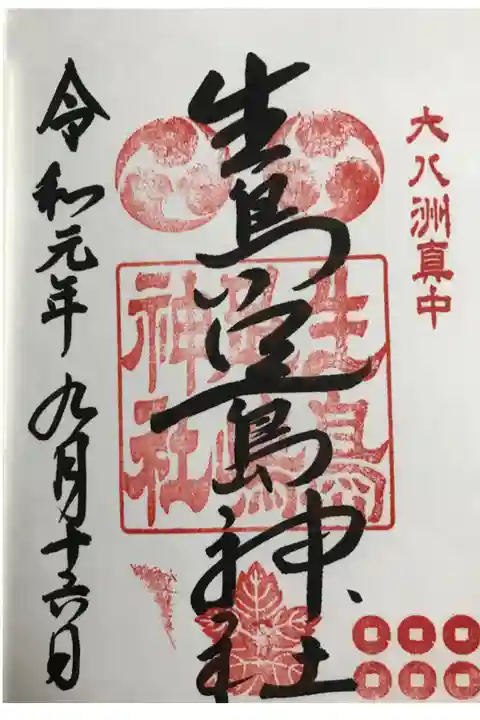 大八洲真中
生島足島神社
生島
足島
神社
令和元年九月十六日